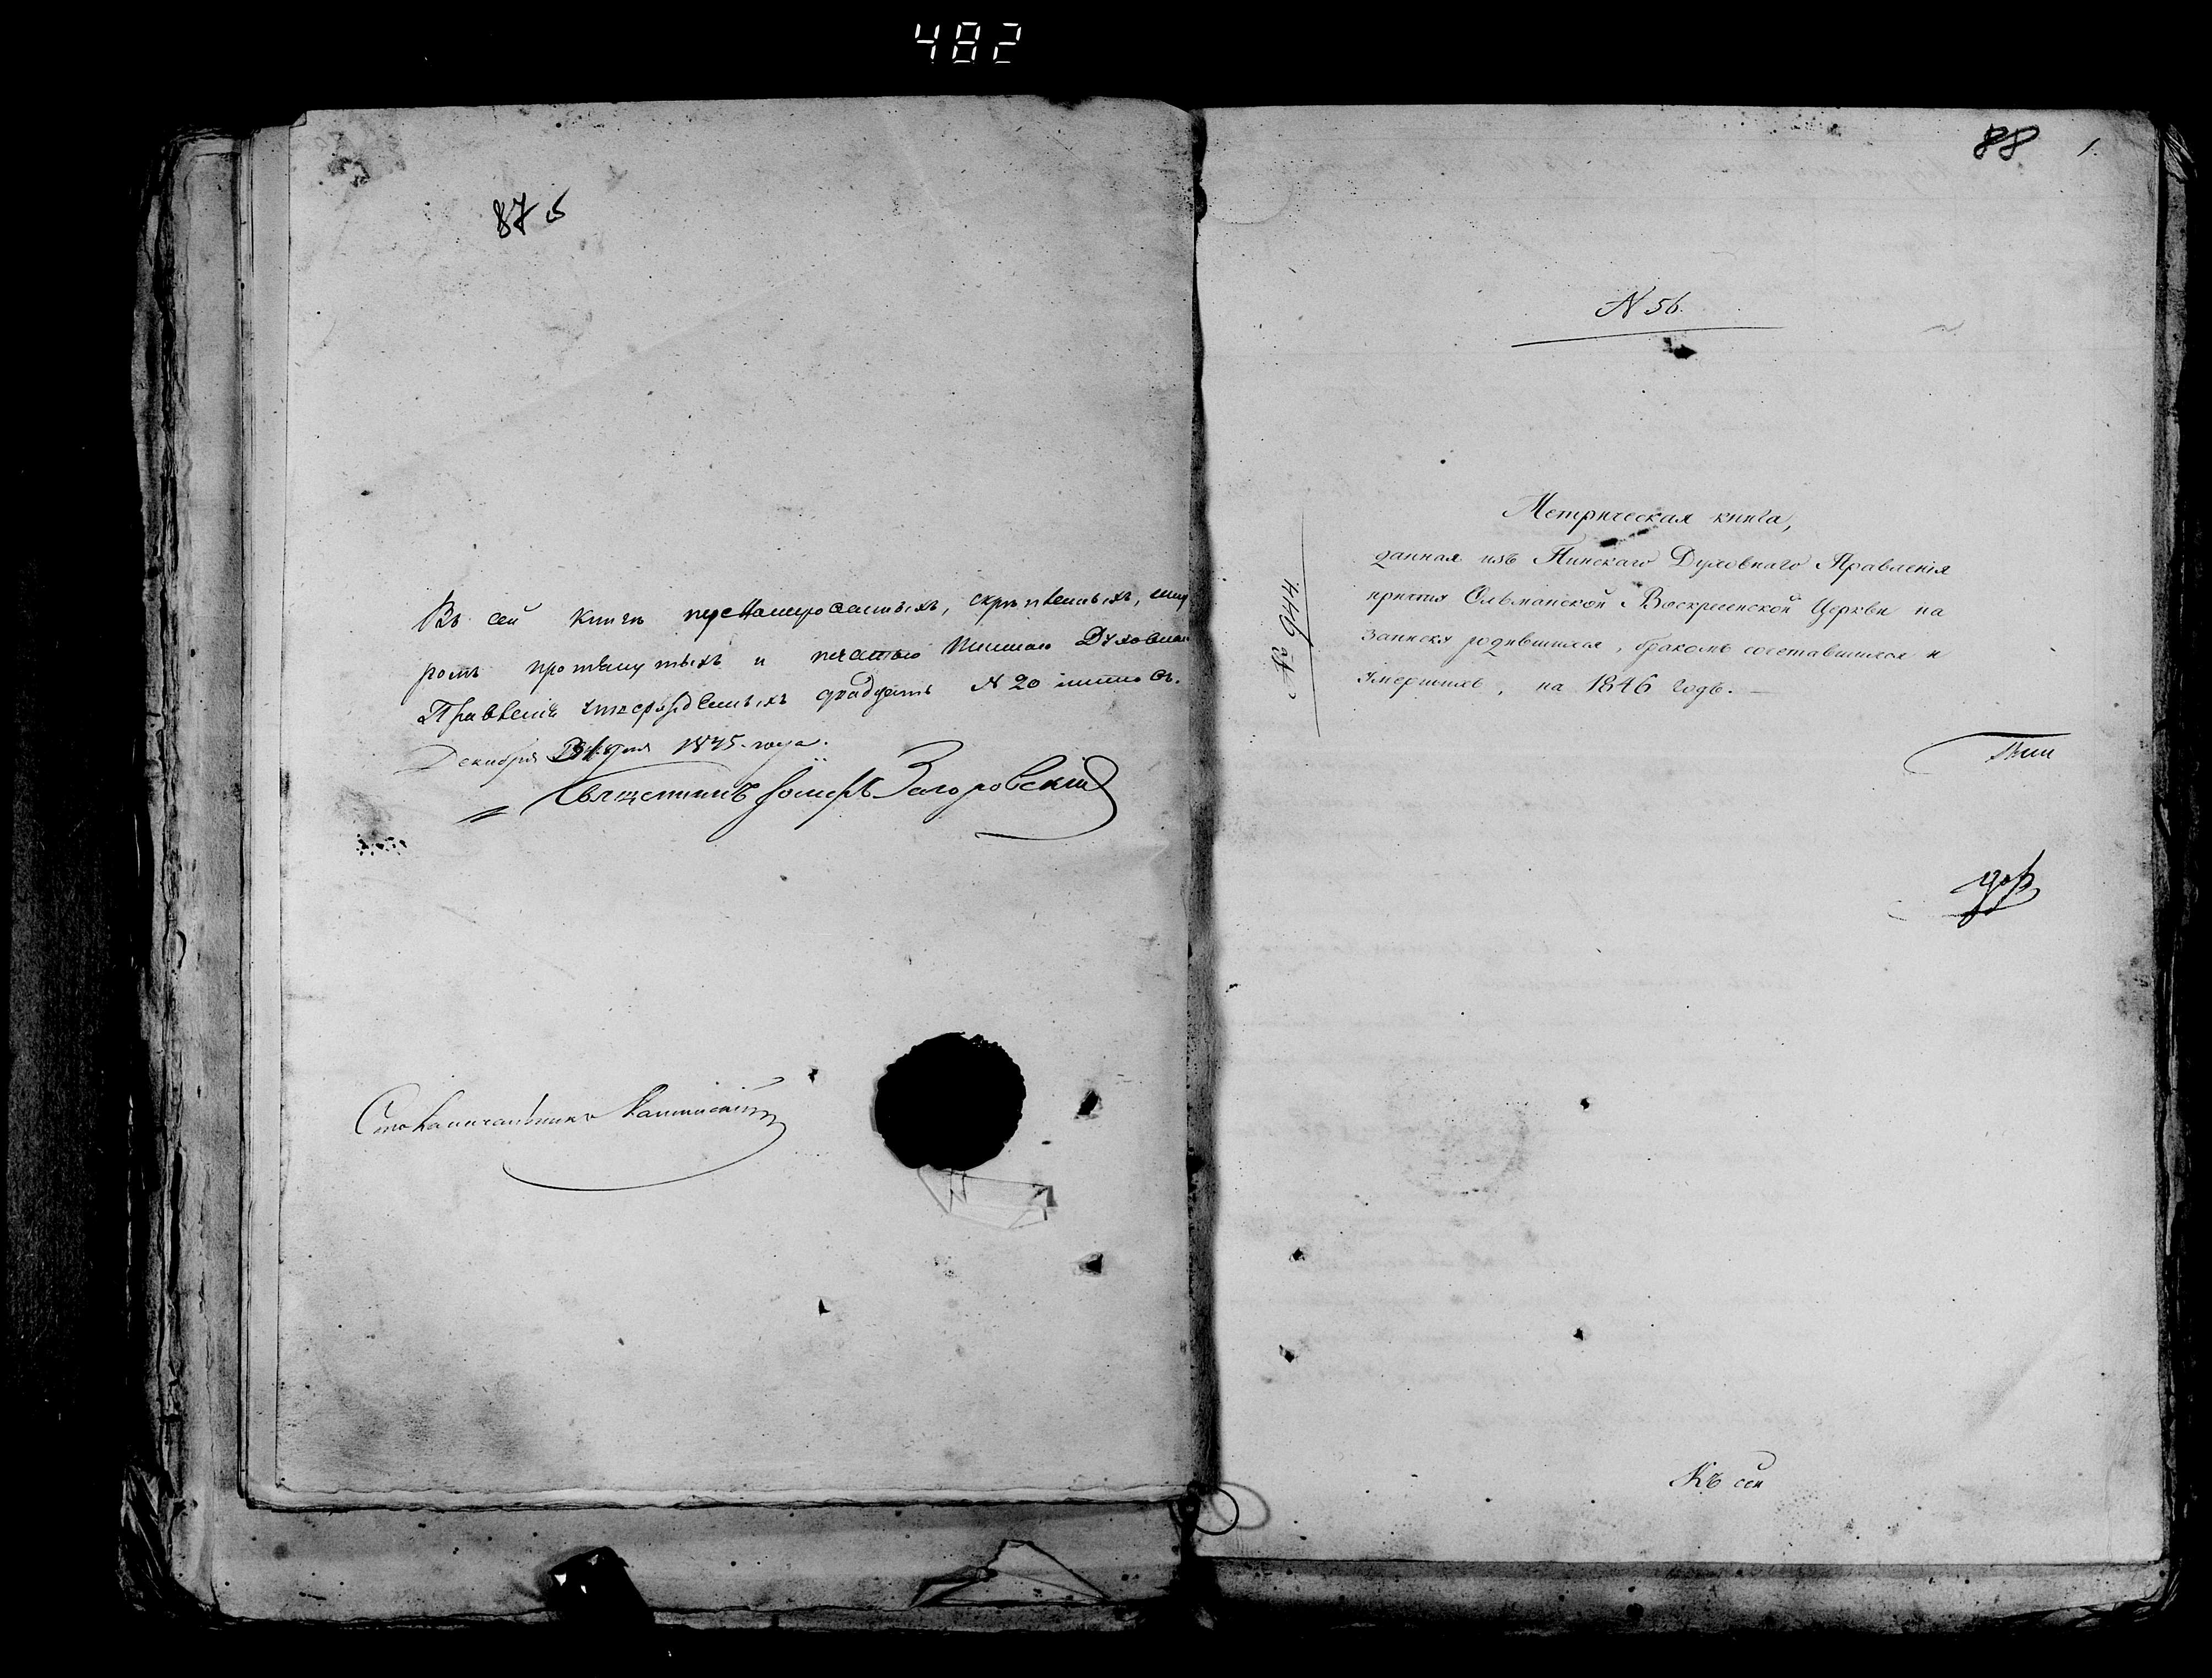 482
87 об
Въ сей книгѣ нумерованныхъ, скрѣпленныхъ, шну
ромъ протянутыхъ и печатью Пинскаго Духовнаго
Правленія утвержденныхъ двадцать № 20 листовъ.
Декабря дня 1845 года.
Священникъ Іосифъ Загоровскій
Столоначальникъ
88 1.
N 56.
№ 944
Метрическая книга,
данная изъ Пинскаго Духовнаго Правленія
причту Ольманской Воскресенской Церкви на
записку родившихся, бракомъ сочетавшихся и
умершихъ, на 1846 годъ. —
Пин
Къ сей